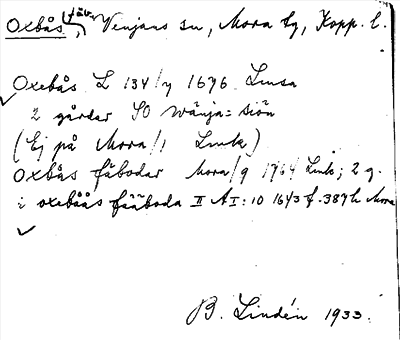 Oxbås (fäb.), Venjans sn, Mora tg, Kopp. l.
Oxebås L 134/y 1696 Lmsa
2 gårdar SO Wänja=siön
(Ej på Mora/1 Lmk)
Oxbås fäbodar Mora/9 1964 Lmk; 2 g.
i oxebåås fääboda II AI:10 1643 f. 387 h Mora
B. Lindén 1933.